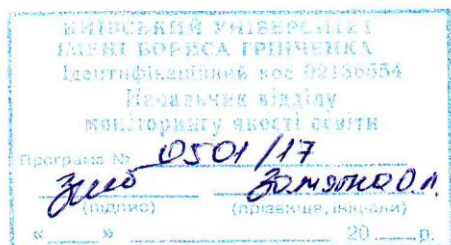 КИЇВСЬКИЙ УНІВЕРСИТЕТ
ІМЕНІ БОРИСА ГРІНЧЕНКА
Ідентифікаційний код 02136554
Начальник відділу
моніторингу якості освіти
Програма № 0501/17
(підпис) (прізвище, ініціали)
« » 20 р.